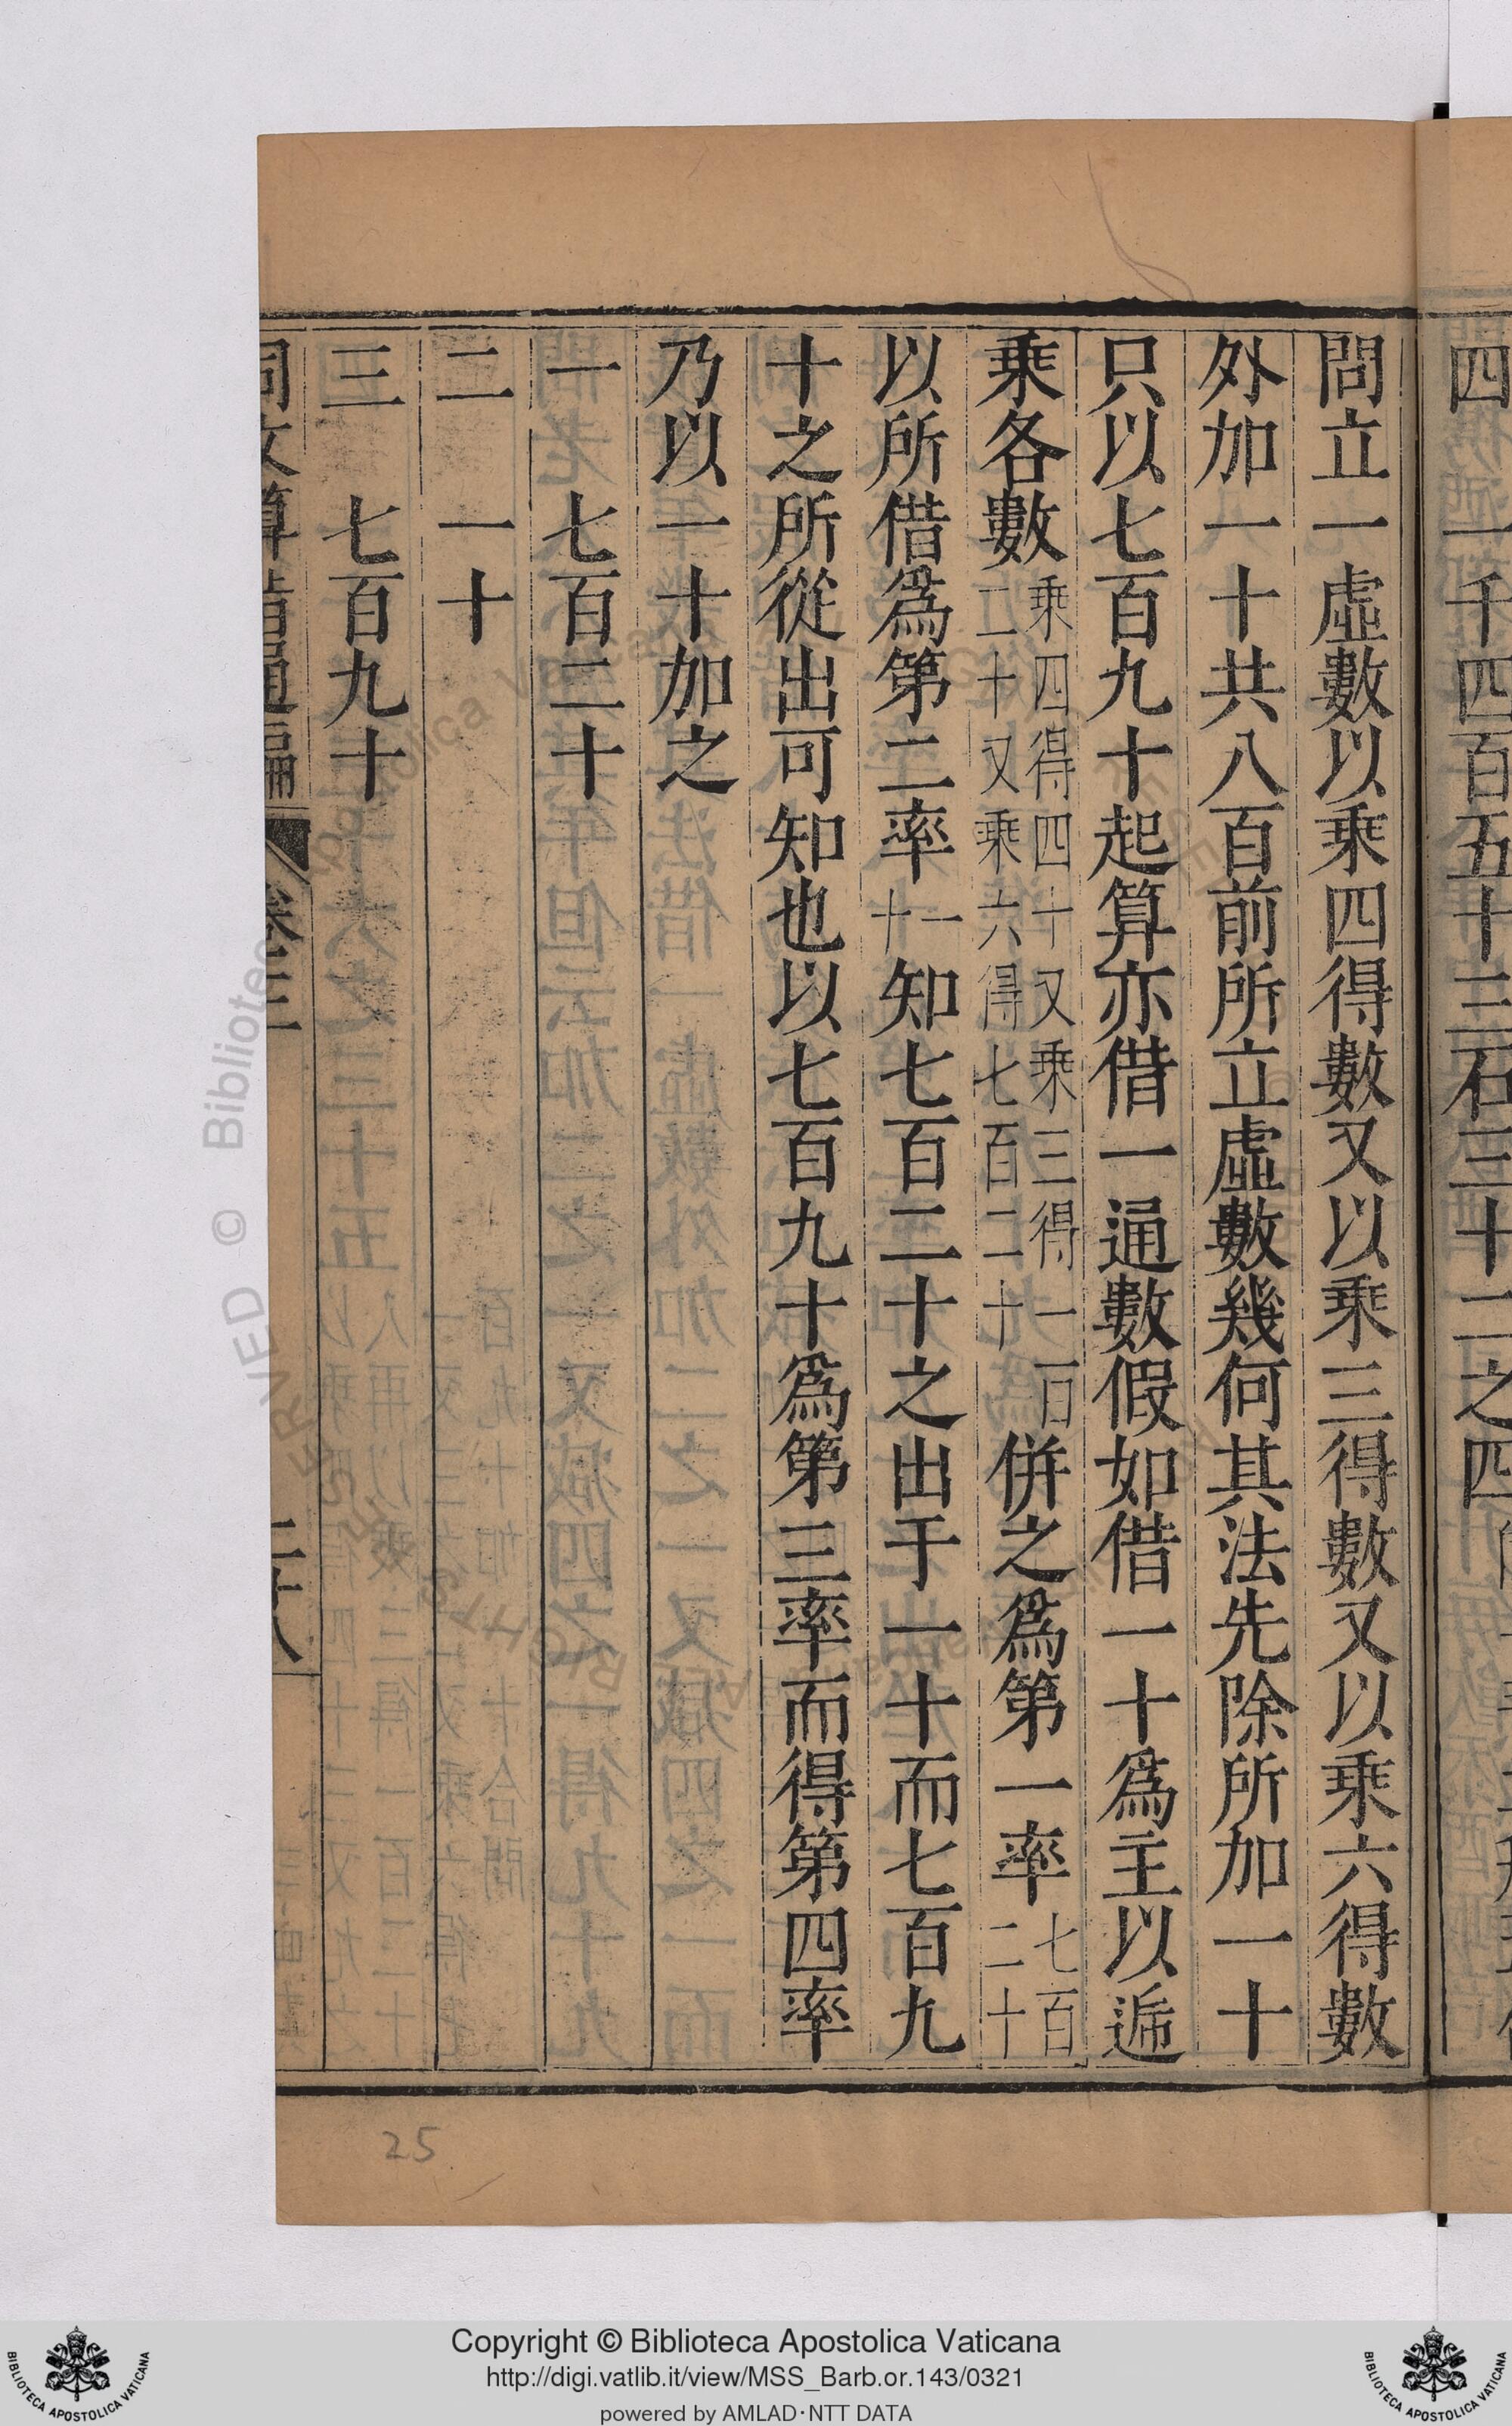 四 一千四百五十三石三十二之四
問立一虛數以乘四得數又以乘三得數又以乘六得數
外加一十共八百前所立虛數幾何其法先除所加一十
只以七百九十起算亦借一通數假如借一十為主以遞
乘各數乘四得四十又乘三得一百二十又乘六得七百二十併之為第一率七百二十
以所借為第二率一十知七百二十之出于一十而七百九
十之所從出可知也以七百九十為第三率而得第四率
乃以一十加之
一 七百二十
二 一十
三 七百九十
同文算指通編 卷三 二十八
25
Copyright © Biblioteca Apostolica Vaticana
http://digi.vatlib.it/view/MSS_Barb.or.143/0321
powered by AMLAD·NTT DATA